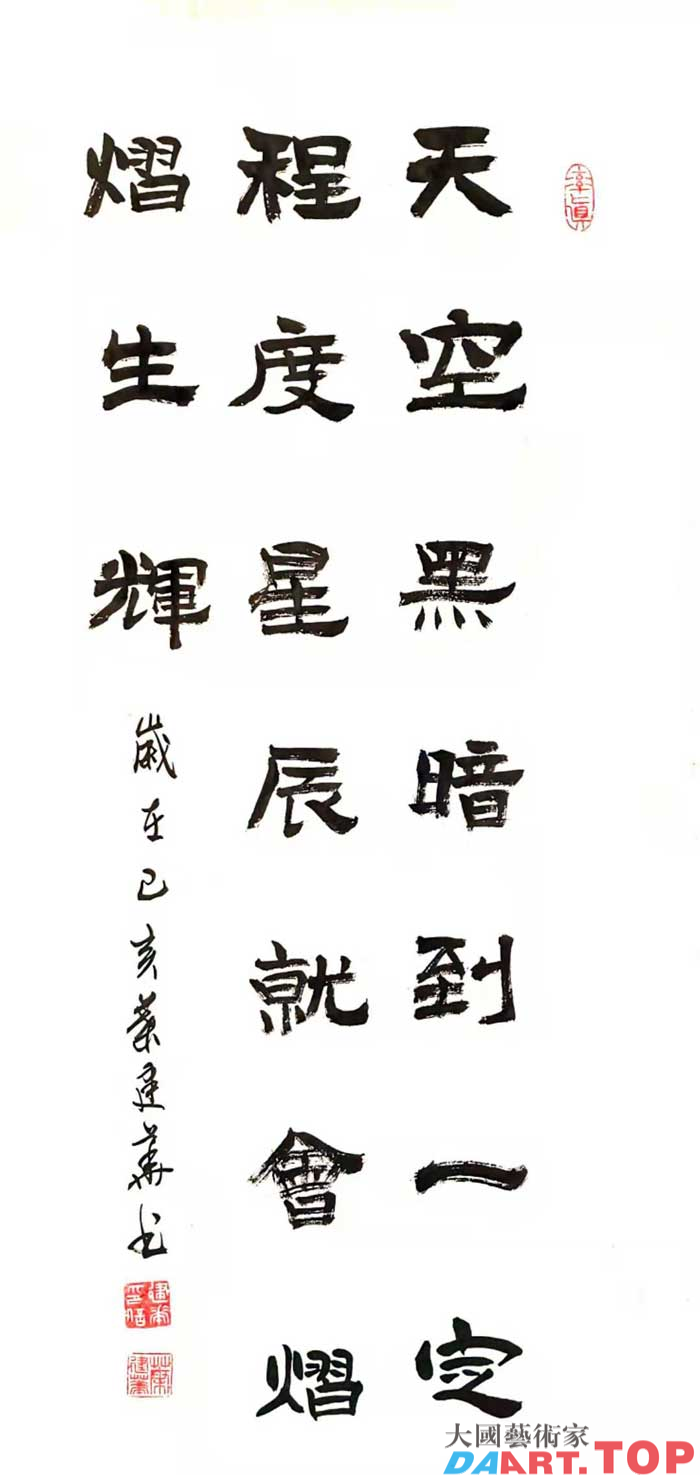 天空黑暗到一定
程度星辰就會熠
熠生輝
歲在己亥葉建華書
率真
大國藝術家
DAART.TOP